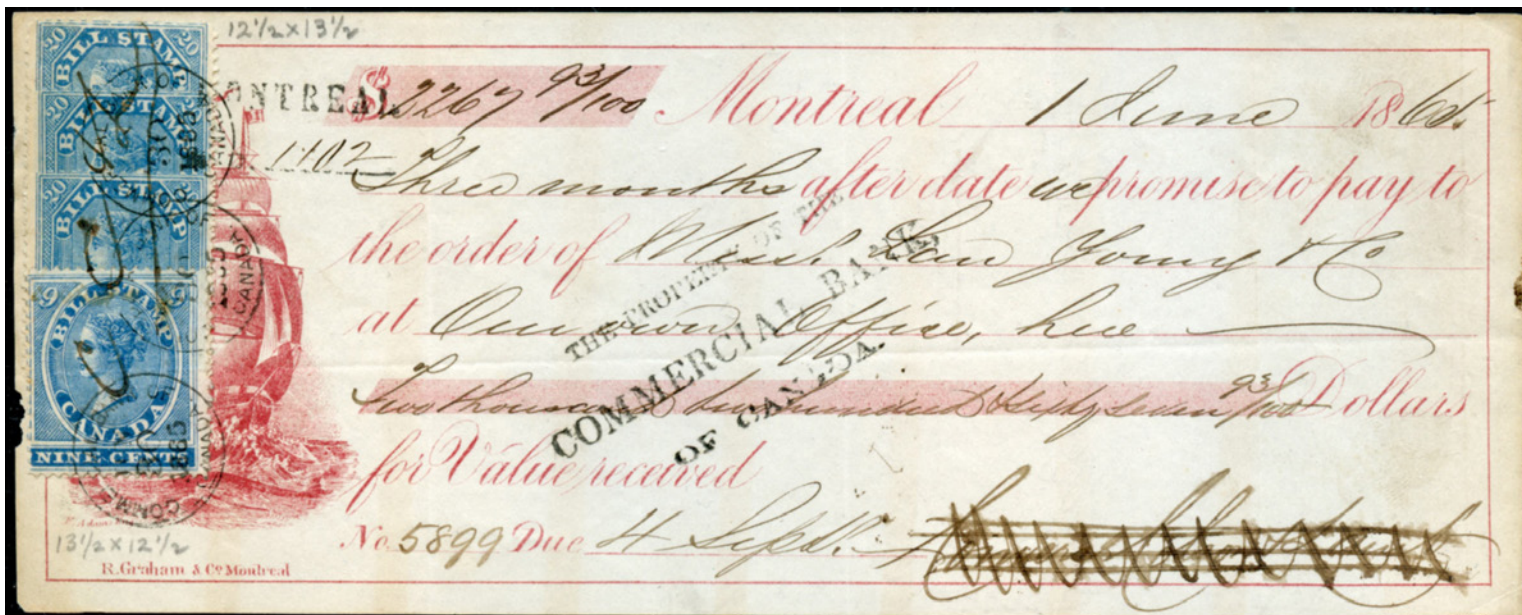 12½ x 13½
20 BILL STAMP 20
20 BILL STAMP 20
20 BILL STAMP 20
9 BILL STAMP 9
CANADA
NINE CENTS
MONTREAL
1102
$2267 93/100 Montreal 1 June 1865.
Three months after date we promise to pay to
the order of Mess. Law Young & Co
at Our own Office, here
Two thousand two hundred & sixty seven 93/100 Dollars
for Value received
No. 5899 Due 4 Sept.
THE PROPERTY OF THE
COMMERCIAL BANK
OF CANADA.
13½ x 12½
R. Graham & Co Montreal